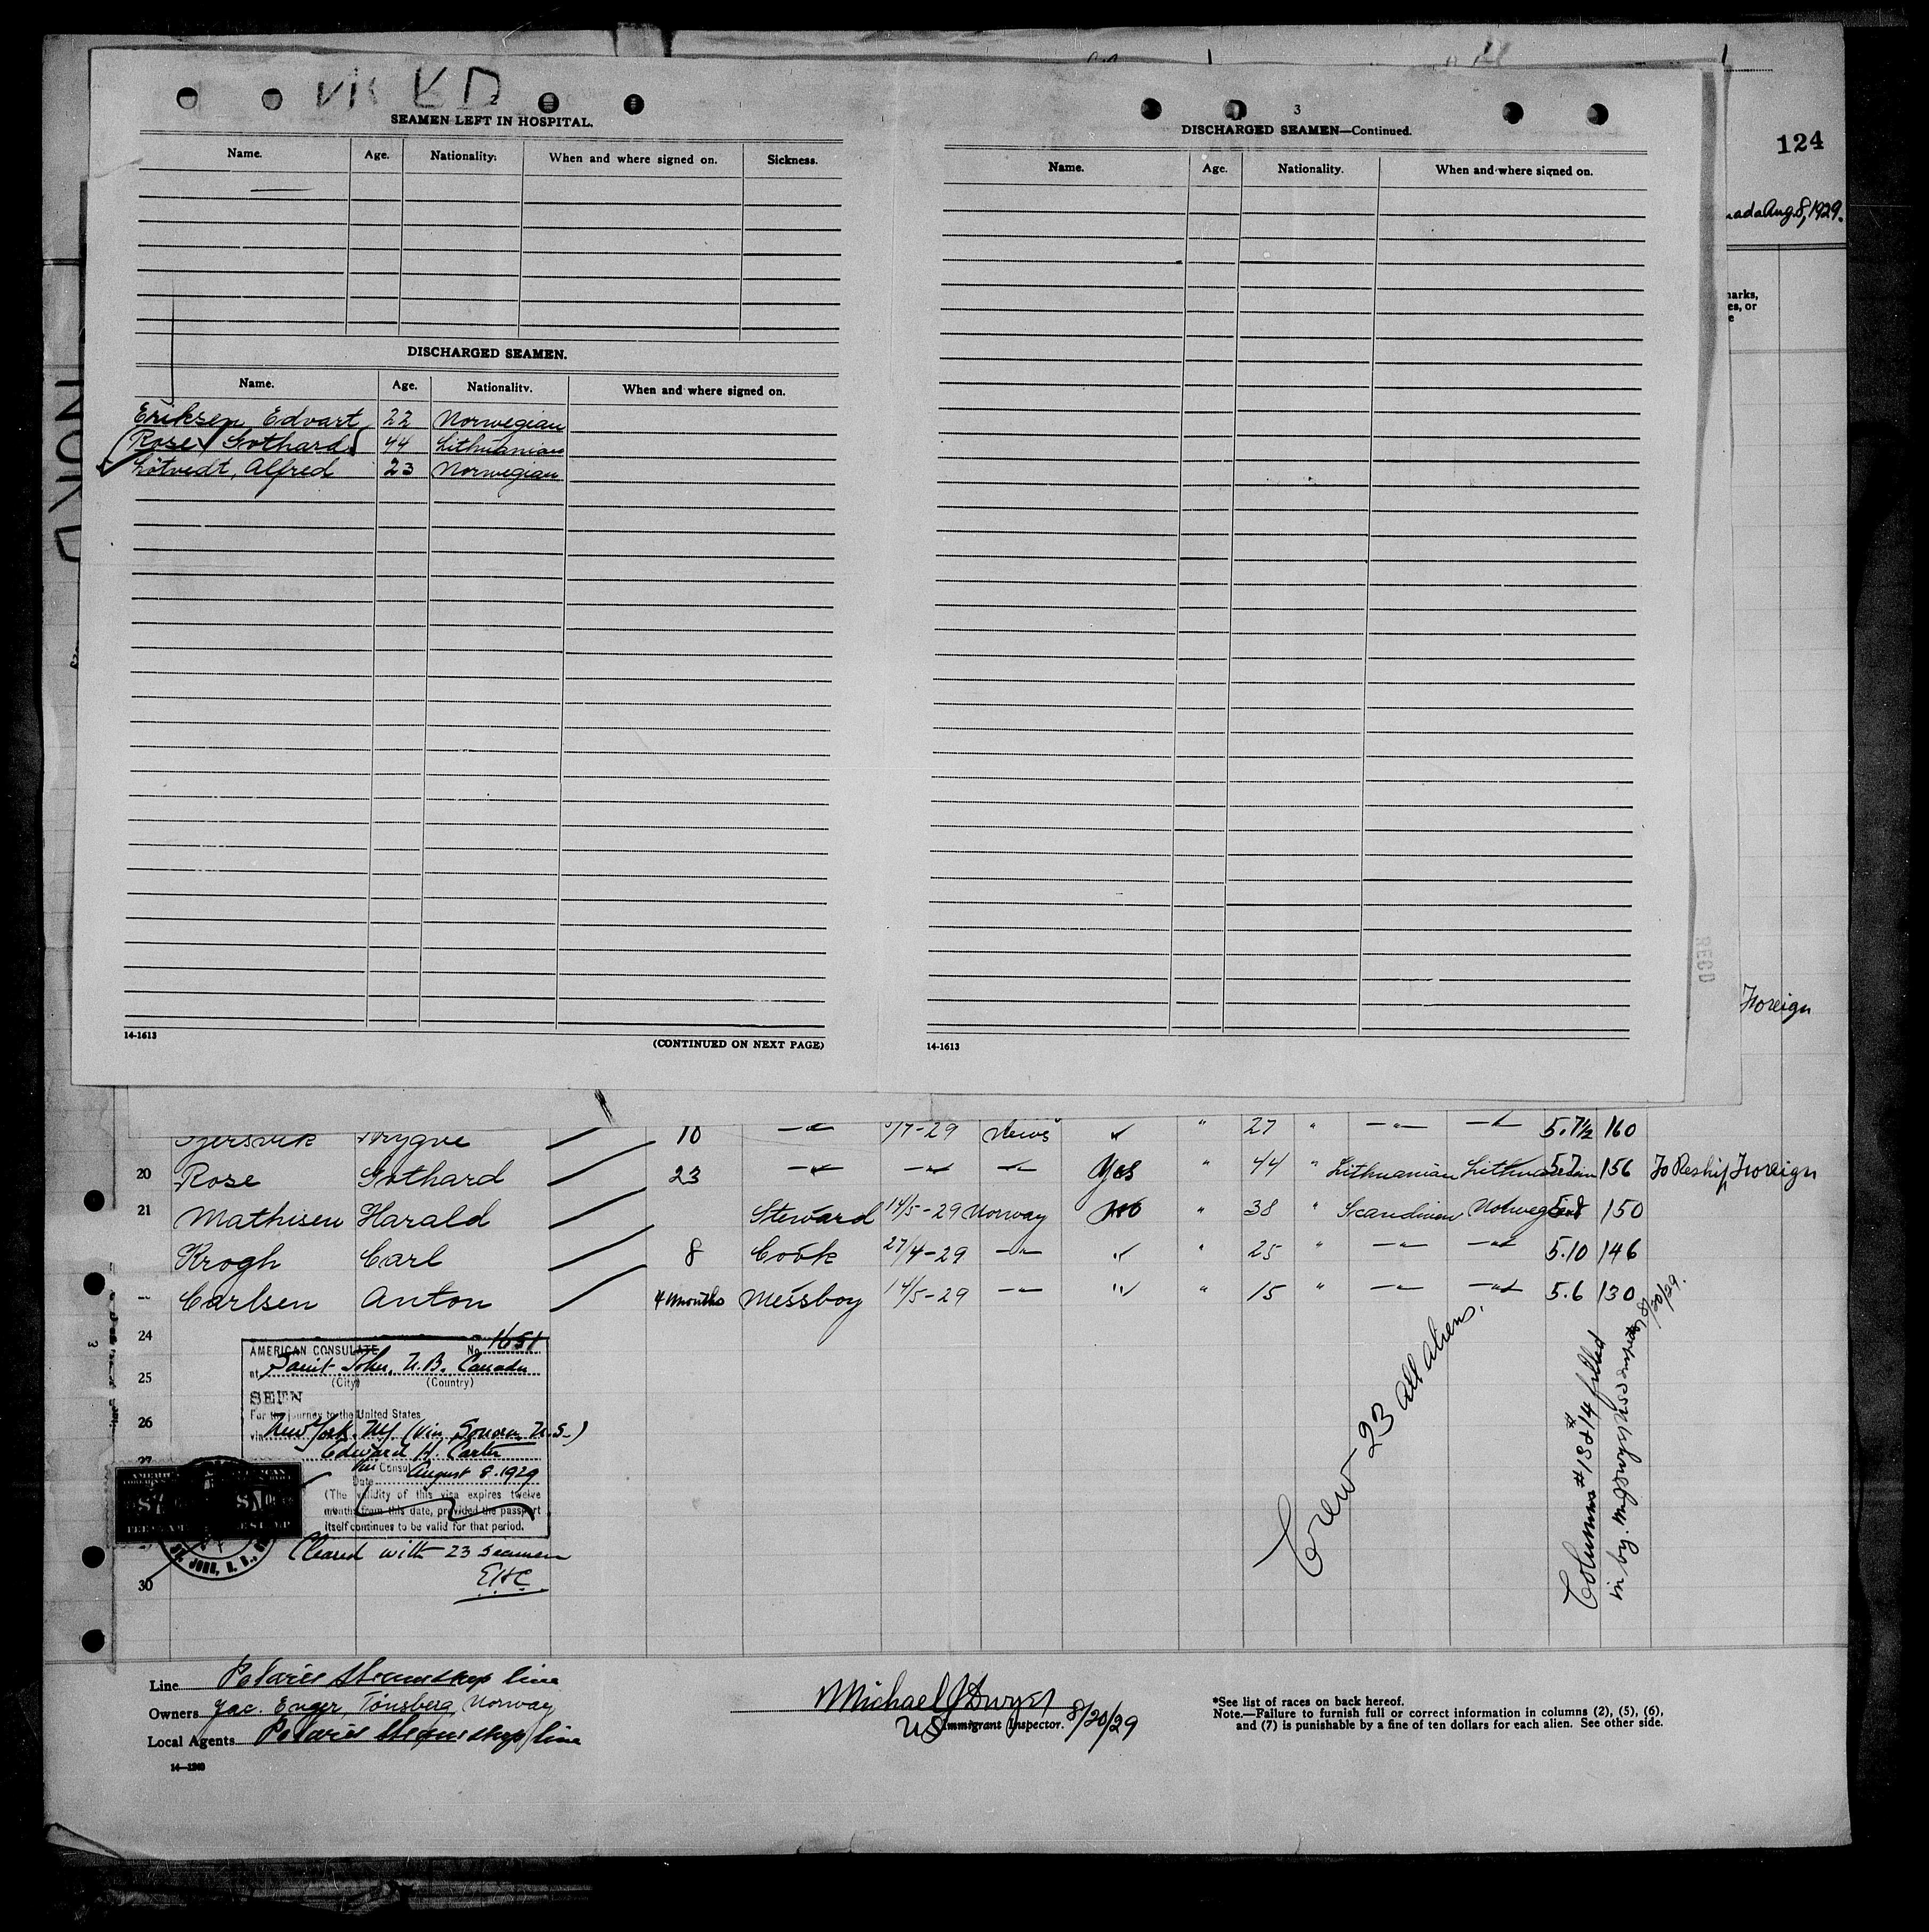 2
SEAMEN LEFT IN HOSPITAL.
Name. Age. Nationality. When and where signed on. Sickness.
DISCHARGED SEAMEN.
Name. Age. Nationality. When and where signed on.
Eriksen, Edvart 22 Norwegian
Rose, Gothard 44 Lithuanian
Lötvedt, Alfred 23 Norwegian
14-1613
(CONTINUED ON NEXT PAGE)
3
DISCHARGED SEAMEN—Continued.
Name. Age. Nationality. When and where signed on.
14-1613
RECD
124
nada Aug. 8, 1929.
marks,
es, or
e
Foreign
Gjersvik Trygve 10 —"— -29 News " " 27 " —"— —"— 5.7½ 160
20 Rose Gothard 23 —"— —"— —"— Yes " 44 " Lithuanian 5.7 156 To Reship Foreign
21 Mathisen Harald Steward 14/5-29 Norway No " 38 " 5.8 150
Krogh Carl 8 Cook 27/4-29 —"— " " 25 " —"— —"— 5.10 146
Carlsen Anton 4 months Messboy 14/5-29 —"— " " 15 " —"— —"— 5.6 130
24
25
26
27
30
AMERICAN CONSULATE No. 1651
at Saint John, N.B. Canada
(City) (Country)
SEEN
For the journey to the United States
via New York, NY (via U.S.)
Edward H. Carter
Vice Consul
Date August 8-1929
(The validity of this visa expires twelve
months from this date, provided the passport
itself continues to be valid for that period.
Cleared with 23 seamen
EHC
Crew 23 all aliens.
Columns #13 & #14 filled
in by M. J. Dwyer US 8/20/29.
Line Polaris Steamship line
Owners Jac. Enger, Tönsberg, Norway
Local Agents Polaris Steamship line
14—1240
Michael J Dwyer
US Immigrant Inspector. 8/20/29
*See list of races on back hereof.
Note.—Failure to furnish full or correct information in columns (2), (5), (6),
and (7) is punishable by a fine of ten dollars for each alien. See other side.